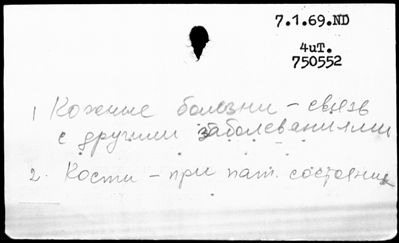 7.1.69.ND
4uT.
750552
1 Кожные болезни – связь
с другими заболеваниями
2. Кости – при пат. состояние